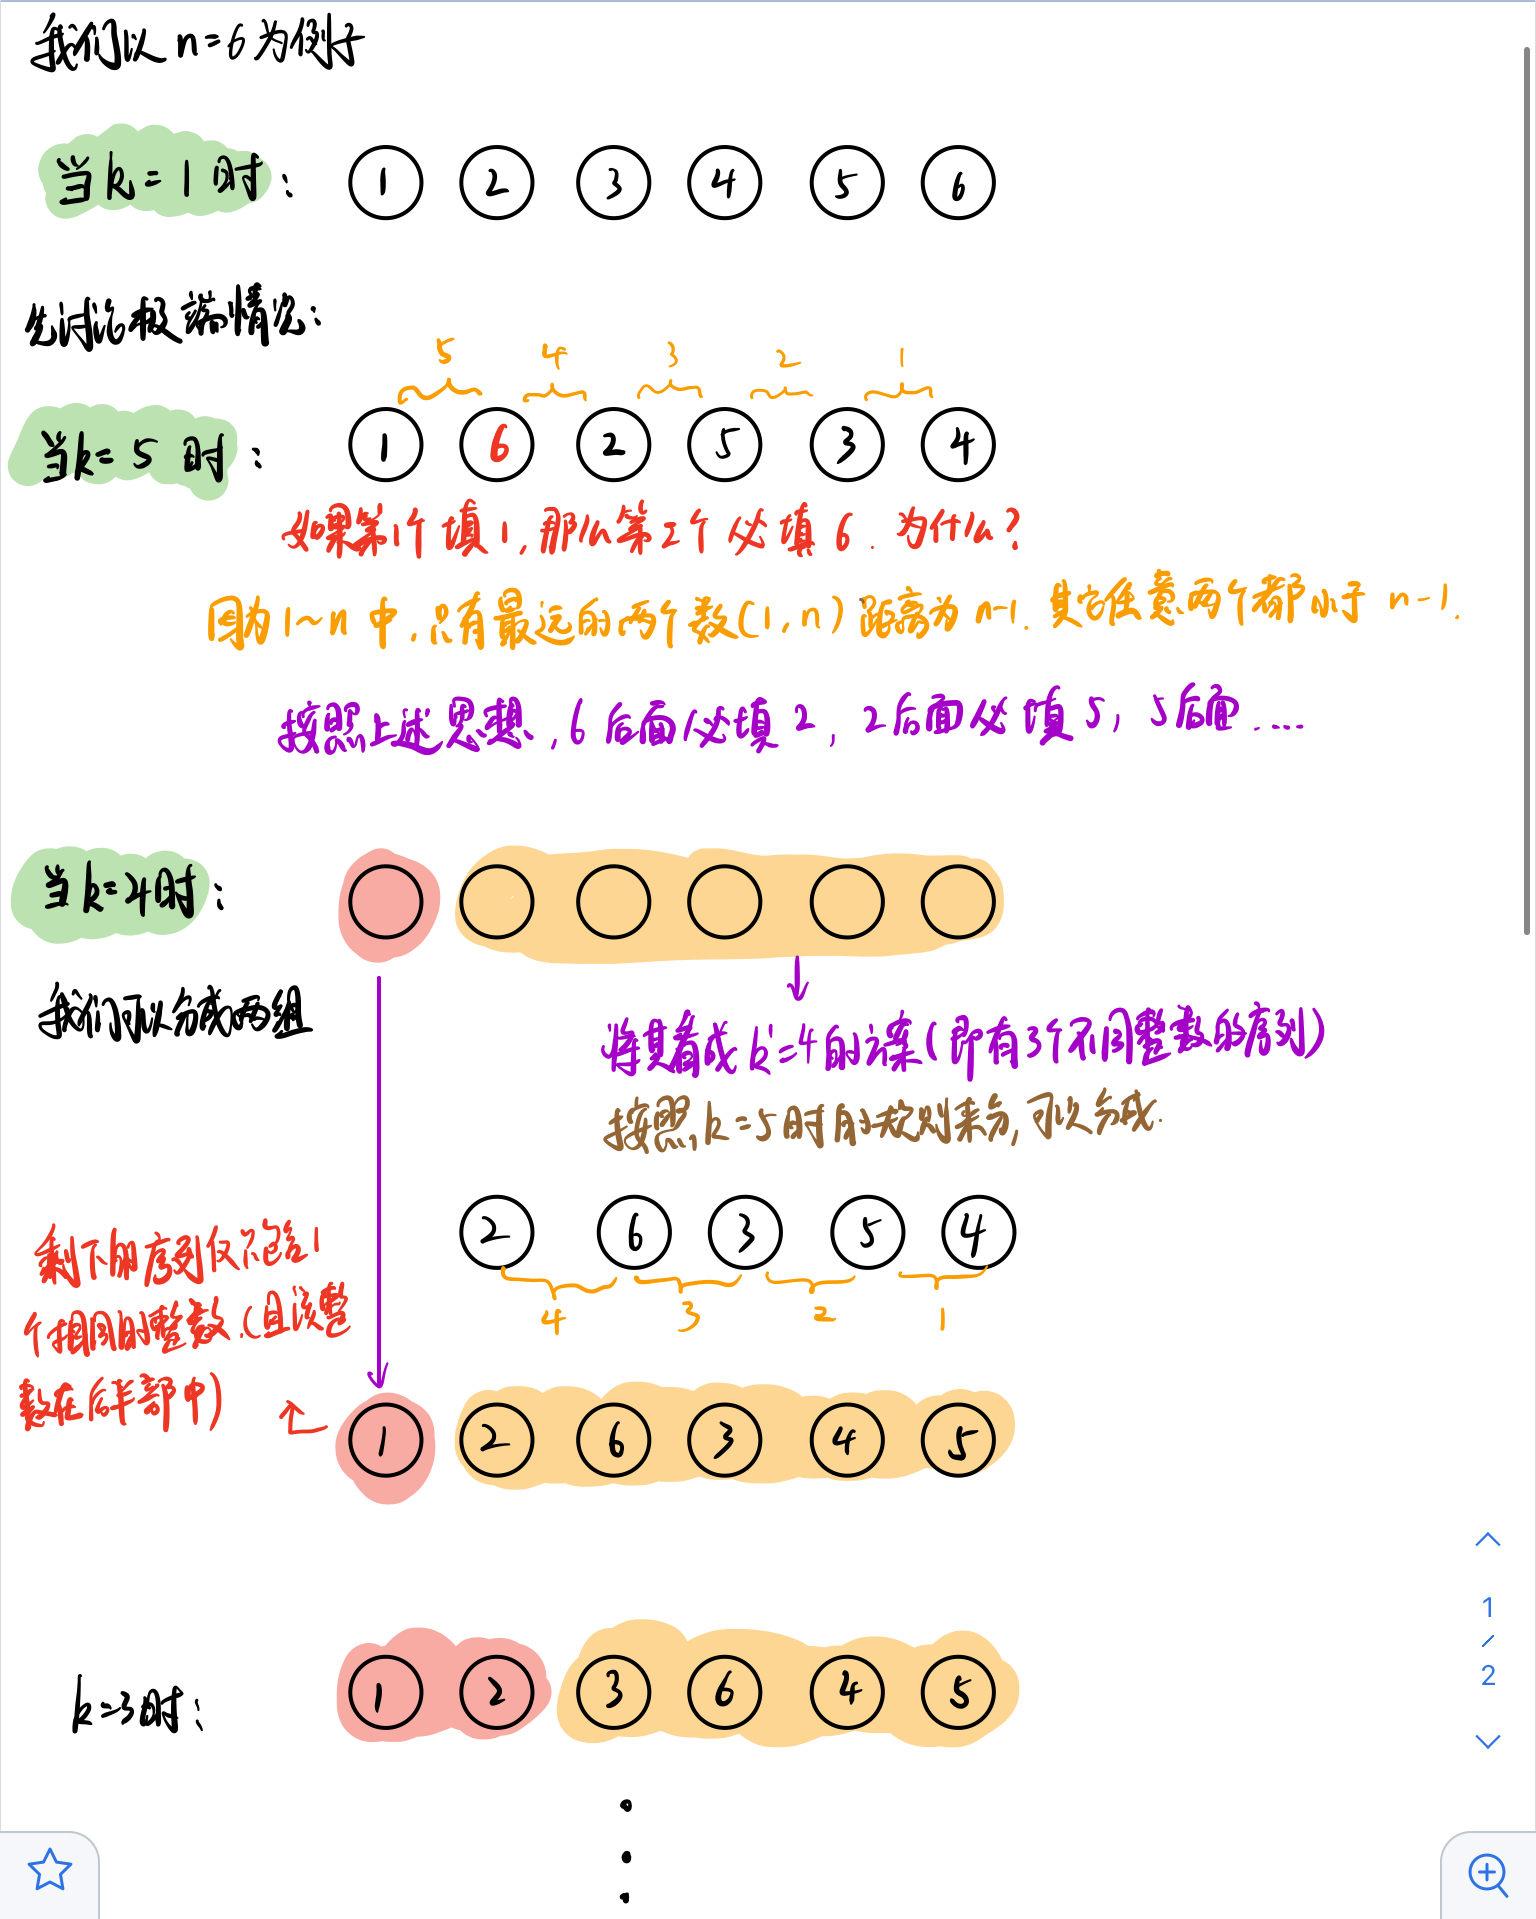 我们以 n=6 为例子
当k=1时: 1 2 3 4 5 6
先讨论极端情况:
5 4 3 2 1
当k=5时: 1 6 2 5 3 4
如果第1个填1,那么第2个必填6.为什么?
因为1~n中,只有最远的两个数(1,n)距离为n-1.其它任意两个都小于n-1.
按照上述思想,6后面必填2,2后面必填5,5后面....
当k=4时:
我们可以分成两组
将其看成k'=4的方案(即有3个不同整数的序列)
按照k=5时的规则来分,可以分成.
2 6 3 5 4
4 3 2 1
剩下的序列仅只包含1
个相同的整数.(且该整
数在后半部中)
1 2 6 3 4 5
k=3时: 1 2 3 6 4 5
1
/
2